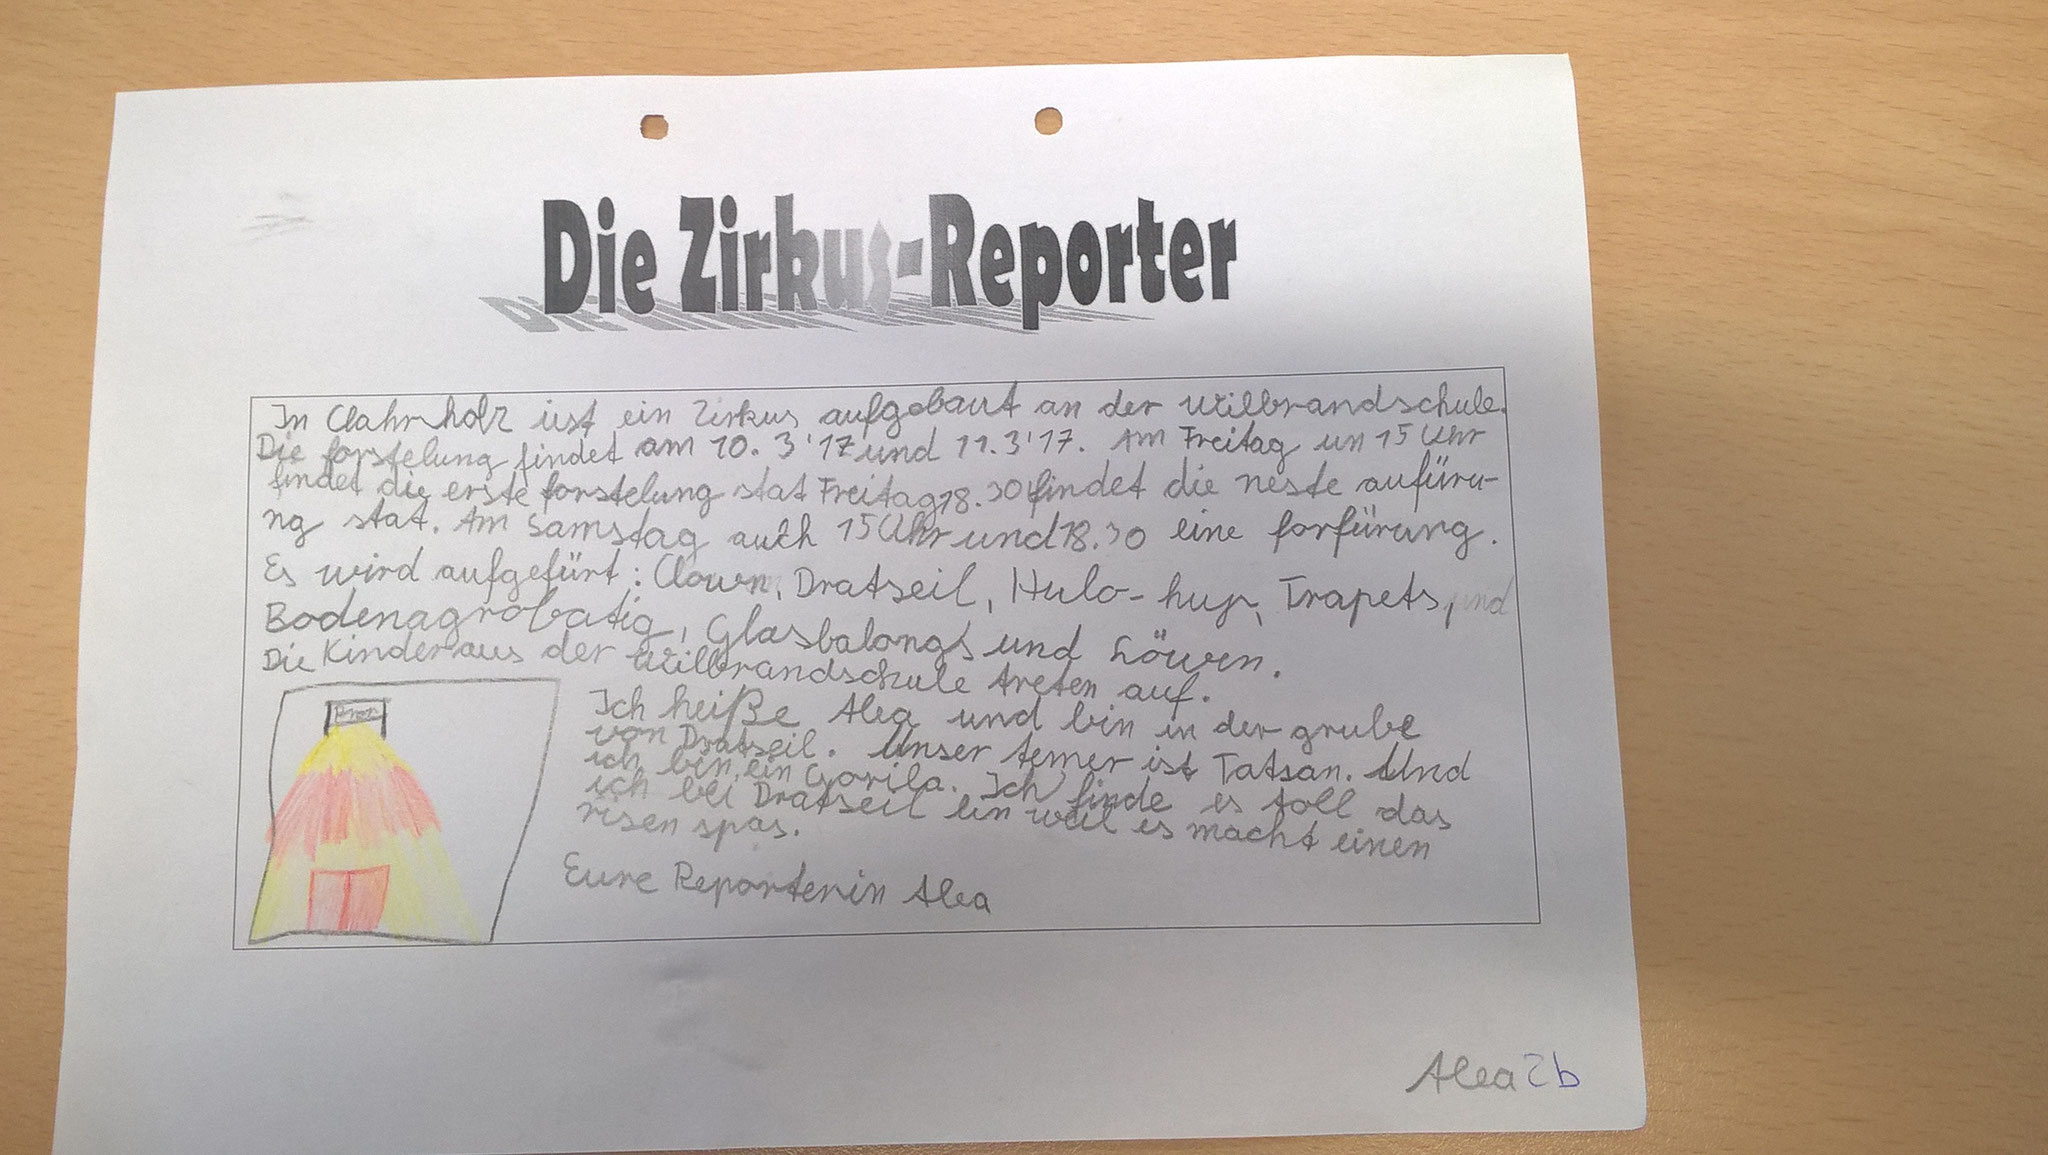 Die Zirkus-Reporter
In Clahrholz ist ein Zirkus aufgebaut an der Wilbrandschule.
Die forstelung findet am 10. 3'17 und 11.3'17. Am Freitag un 15 Uhr
findet die erste forstelung stat Freitag 18.30 findet die neste aufüru-
ng stat. Am Samstag auch 15 Uhr und 18.30 eine forfürung.
Es wird aufgefürt: Clown, Dratseil, Hulo-hup, Trapets, und
Bodenagrobatig, Glasbalongs und Löwen.
Die Kinder aus der Wilbrandschule treten auf.
Ich heiße Alea und bin in der grube
von Dratseil. Unser temer ist Tatsan. Und
ich bin ein Gorila. Ich finde es toll das
ich bei Dratseil bin weil es macht einen
risen spas.
Eure Reporterin Alea
Alea 2b